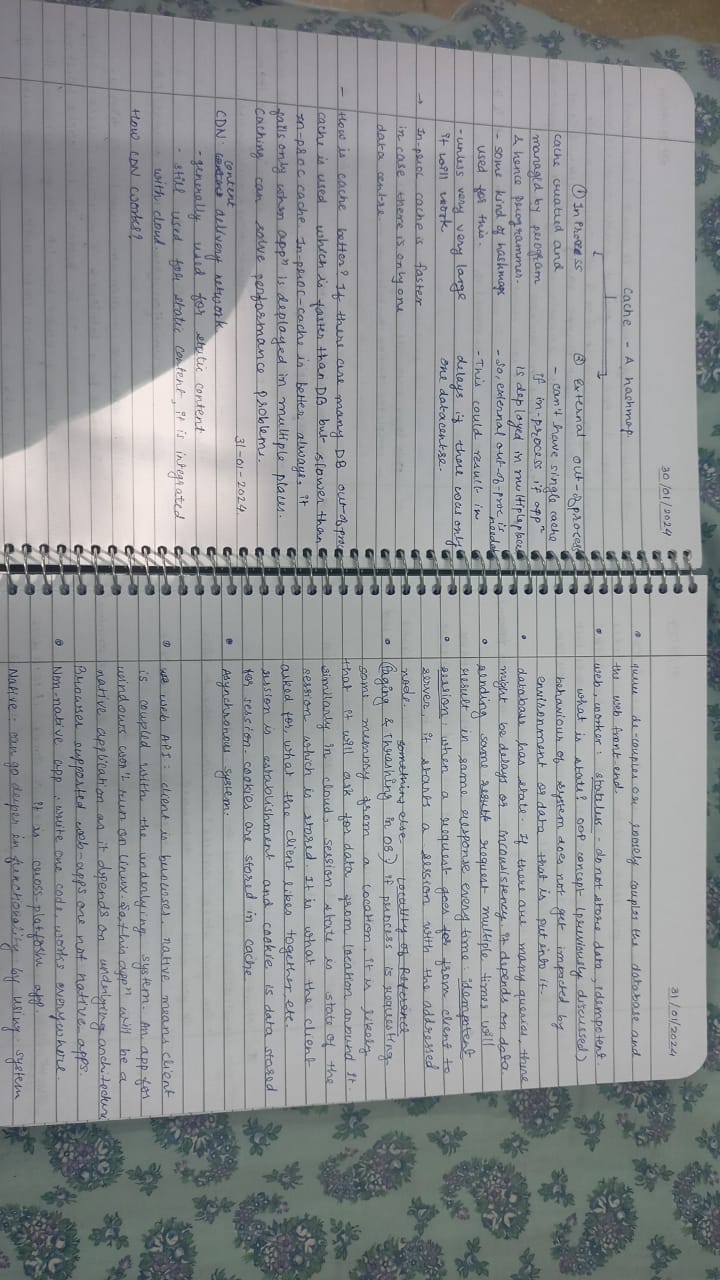 30/01/2024
Cache - A hashmap
① In Process
② External out-of-process
cache created and
managed by program
& hence programmer.
- some kind of hashmap
used for this.
- unless very very large
it will work
- can't have single cache
if in-process if appⁿ
is deployed in multiple places
- So, external out-of-proc is needed
- This could result in
delays if there was only
one datacentre.
→ In-proc cache is faster
in case there is only one
data centre.
- How is cache better? If there are many DB out-of-proc
cache is used which is faster than DB but slower than
in-proc cache. In-proc-cache is better always, it
fails only when appⁿ is deployed in multiple places.
Caching can solve performance problems.
31-01-2024
CDN: content delivery network
- generally used for static content
- still used for static content, it is integrated
with cloud.
How CDN works?
31/01/2024
• queue de-couples or loosely couples the database and
the web front end.
• web, worker: stateless - do not store data, idempotent.
what is state? OOP concept (previously discussed)
behaviour of system does not get impacted by
environment or data that is put into it.
• database has state. If there are many queries, there
might be delays or inconsistency. It depends on data
• sending same request multiple times will
result in same response every time: idempotent
• session: when a request goes from client to
server, it starts a session with the addressed
node. something else Locality of Reference
• (Paging & Thrashing in OS) If process is requesting
some memory from a location it is likely
that it will ask for data from location around it.
similarly in cloud, session state is state of the
session which is stored. It is what the client
asked for, what the client likes together etc.
session is establishment and cookie is data stored
for session. cookies are stored in cache
• Asynchronous system.
① web API: client is browser, native means client
is coupled with the underlying system. An app for
windows won't run on Linux so, this appⁿ will be a
native application as it depends on underlying architecture
Browser supported web-apps are not native apps.
• Non-native app: write one code, works everywhere.
it is cross-platform app
Native: can go deeper in functionality by using system